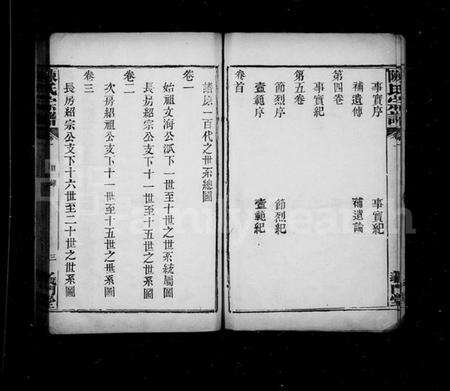 陳氏宗譜
事實序 事實紀
補遺傳 補遺論
第四卷
事實紀
第五卷
節烈序 節烈紀
壼範序 壼範紀
卷首
諸原一百代之世系總圖
卷一
始祖文海公派下一世至十世之系統屬圖
卷二
長房紹宗公支下十一世至十五世之系圖
次房紹祖公支下十一世至十五世之世系圖
卷三
長房紹宗公支下十六世至二十世之世系圖
陳氏宗譜
卷
三